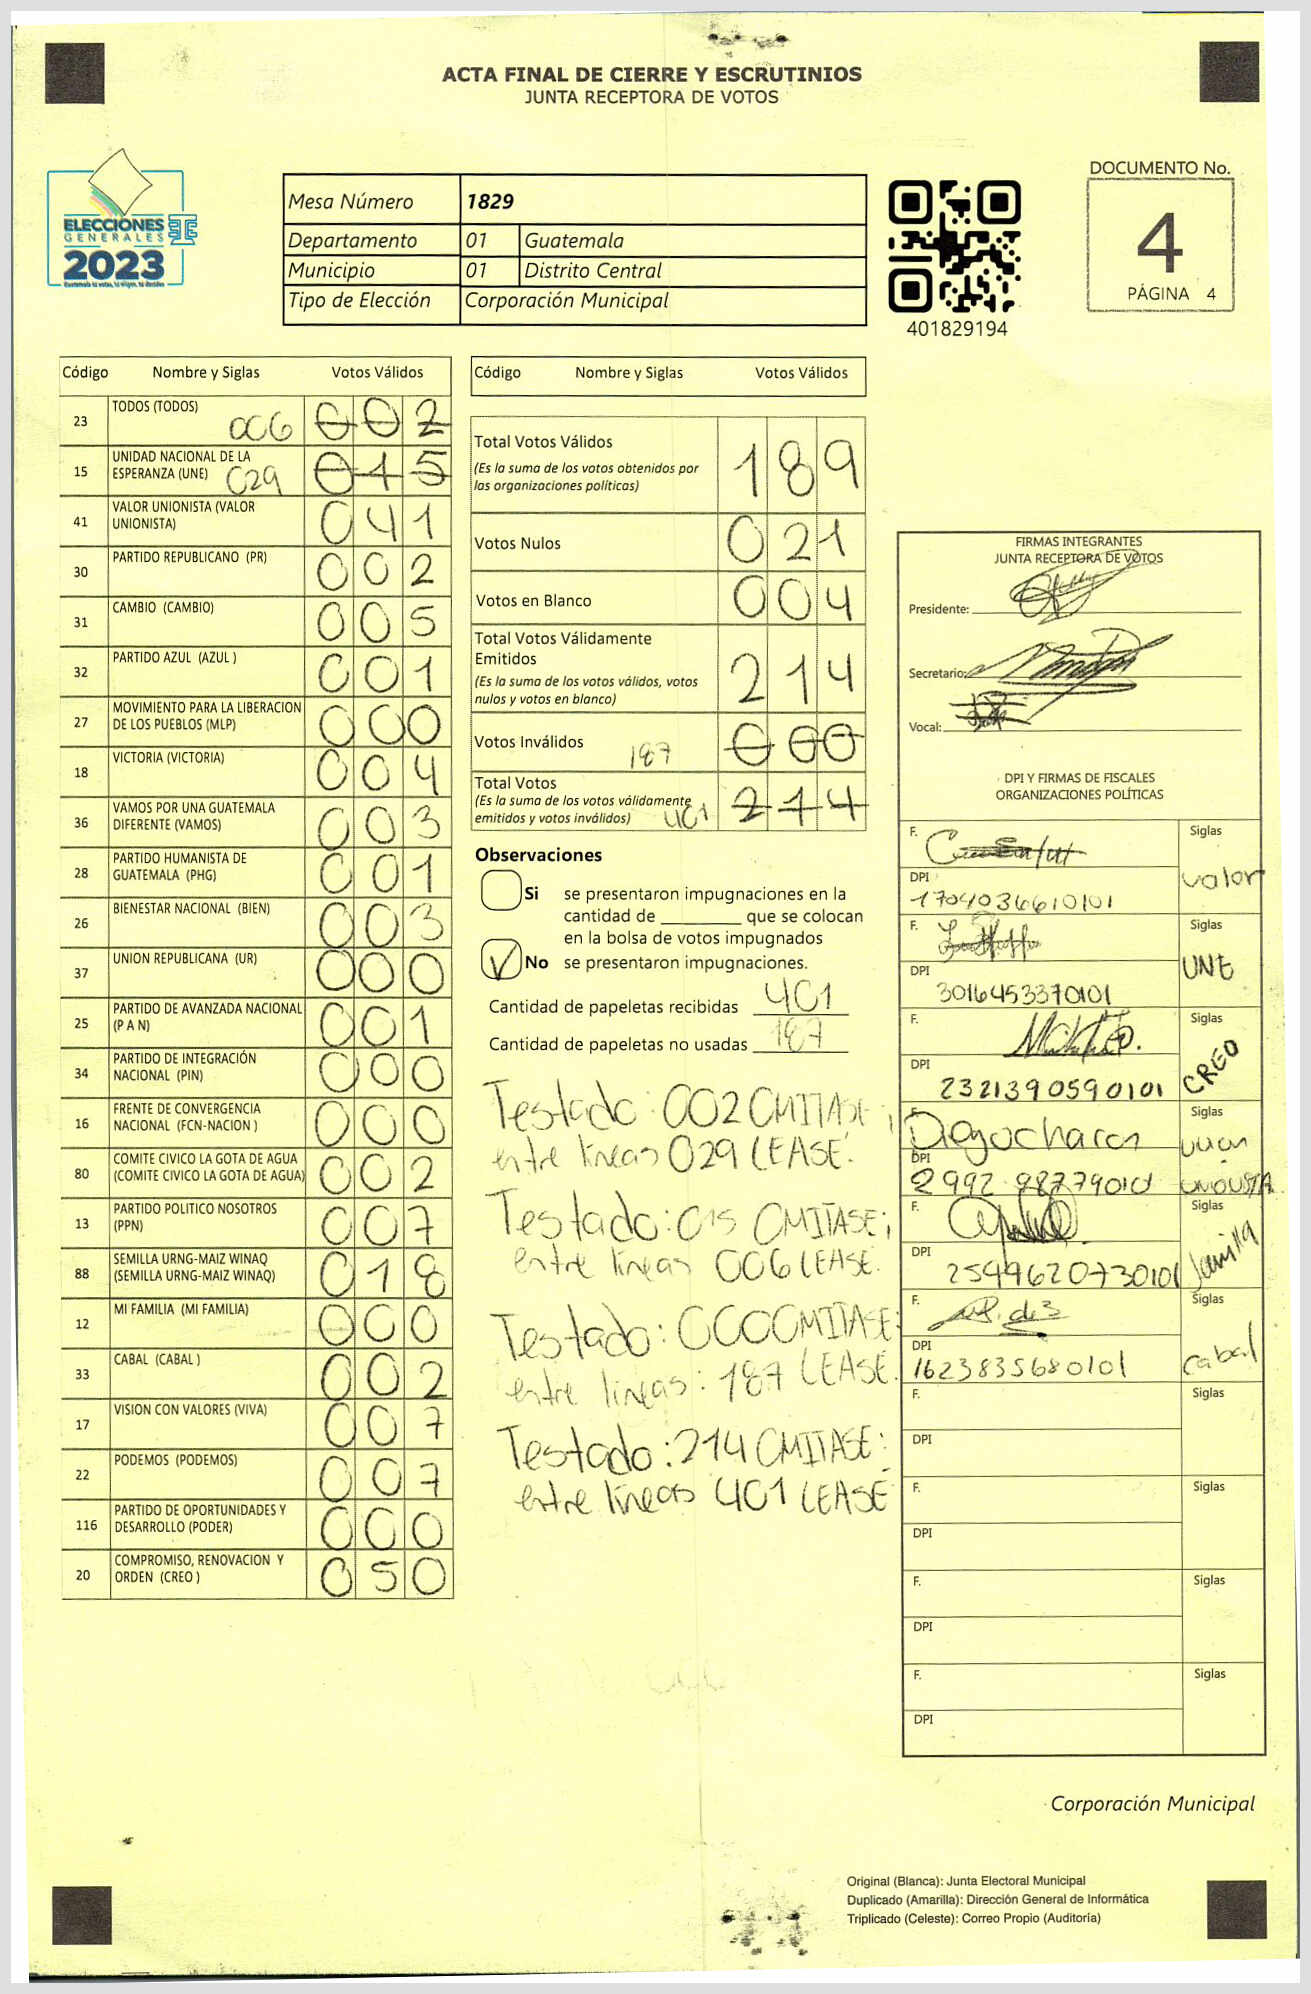 ACTA FINAL DE CIERRE Y ESCRUTINIOS
JUNTA RECEPTORA DE VOTOS
ELECCIONES
GENERALES
2023
Mesa Número 1829
Departamento 01 Guatemala
Municipio 01 Distrito Central
Tipo de Elección Corporación Municipal
401829194
DOCUMENTO No.
4
PÁGINA 4
Código Nombre y Siglas Votos Válidos
23 TODOS (TODOS) 006 002
15 UNIDAD NACIONAL DE LA ESPERANZA (UNE) 029 015
41 VALOR UNIONISTA (VALOR UNIONISTA) 041
30 PARTIDO REPUBLICANO (PR) 002
31 CAMBIO (CAMBIO) 005
32 PARTIDO AZUL (AZUL ) 001
27 MOVIMIENTO PARA LA LIBERACION DE LOS PUEBLOS (MLP) 000
18 VICTORIA (VICTORIA) 004
36 VAMOS POR UNA GUATEMALA DIFERENTE (VAMOS) 003
28 PARTIDO HUMANISTA DE GUATEMALA (PHG) 001
26 BIENESTAR NACIONAL (BIEN) 003
37 UNION REPUBLICANA (UR) 000
25 PARTIDO DE AVANZADA NACIONAL (P A N) 001
34 PARTIDO DE INTEGRACIÓN NACIONAL (PIN) 000
16 FRENTE DE CONVERGENCIA NACIONAL (FCN-NACION ) 000
80 COMITE CIVICO LA GOTA DE AGUA (COMITE CIVICO LA GOTA DE AGUA) 002
13 PARTIDO POLITICO NOSOTROS (PPN) 007
88 SEMILLA URNG-MAIZ WINAQ (SEMILLA URNG-MAIZ WINAQ) 018
12 MI FAMILIA (MI FAMILIA) 000
33 CABAL (CABAL ) 002
17 VISION CON VALORES (VIVA) 007
22 PODEMOS (PODEMOS) 007
116 PARTIDO DE OPORTUNIDADES Y DESARROLLO (PODER) 000
20 COMPROMISO, RENOVACION Y ORDEN (CREO ) 050
Código Nombre y Siglas Votos Válidos
Total Votos Válidos 189
(Es la suma de los votos obtenidos por
las organizaciones políticas)
Votos Nulos 021
Votos en Blanco 004
Total Votos Válidamente
Emitidos 214
(Es la suma de los votos válidos, votos
nulos y votos en blanco)
Votos Inválidos 187 000
Total Votos
(Es la suma de los votos válidamente
emitidos y votos inválidos) 401 214
Observaciones
Si se presentaron impugnaciones en la
cantidad de ________ que se colocan
en la bolsa de votos impugnados
No se presentaron impugnaciones.
Cantidad de papeletas recibidas 401
Cantidad de papeletas no usadas 187
Testado: 002 OMITASE;
entre lineas 029 LEASE.
Testado: 015 OMITASE;
entre lineas 006 LEASE.
Testado: 000 OMITASE:
entre lineas: 187 LEASE.
Testado: 214 OMITASE:
entre lineas 401 LEASE
FIRMAS INTEGRANTES
JUNTA RECEPTORA DE VOTOS
Presidente:
Secretario:
Vocal:
DPI Y FIRMAS DE FISCALES
ORGANIZACIONES POLÍTICAS
F. Siglas
DPI valor
1704036610101
F. Siglas
DPI UNE
3016453370101
F. Siglas
DPI CREO
2321390590101
Siglas
DPI
F. Siglas
DPI
2549620730101 Semilla
F. Siglas
DPI cabal
1623835680101
F. Siglas
DPI
F. Siglas
DPI
F. Siglas
DPI
F. Siglas
DPI
Corporación Municipal
Original (Blanca): Junta Electoral Municipal
Duplicado (Amarilla): Dirección General de Informática
Triplicado (Celeste): Correo Propio (Auditoría)